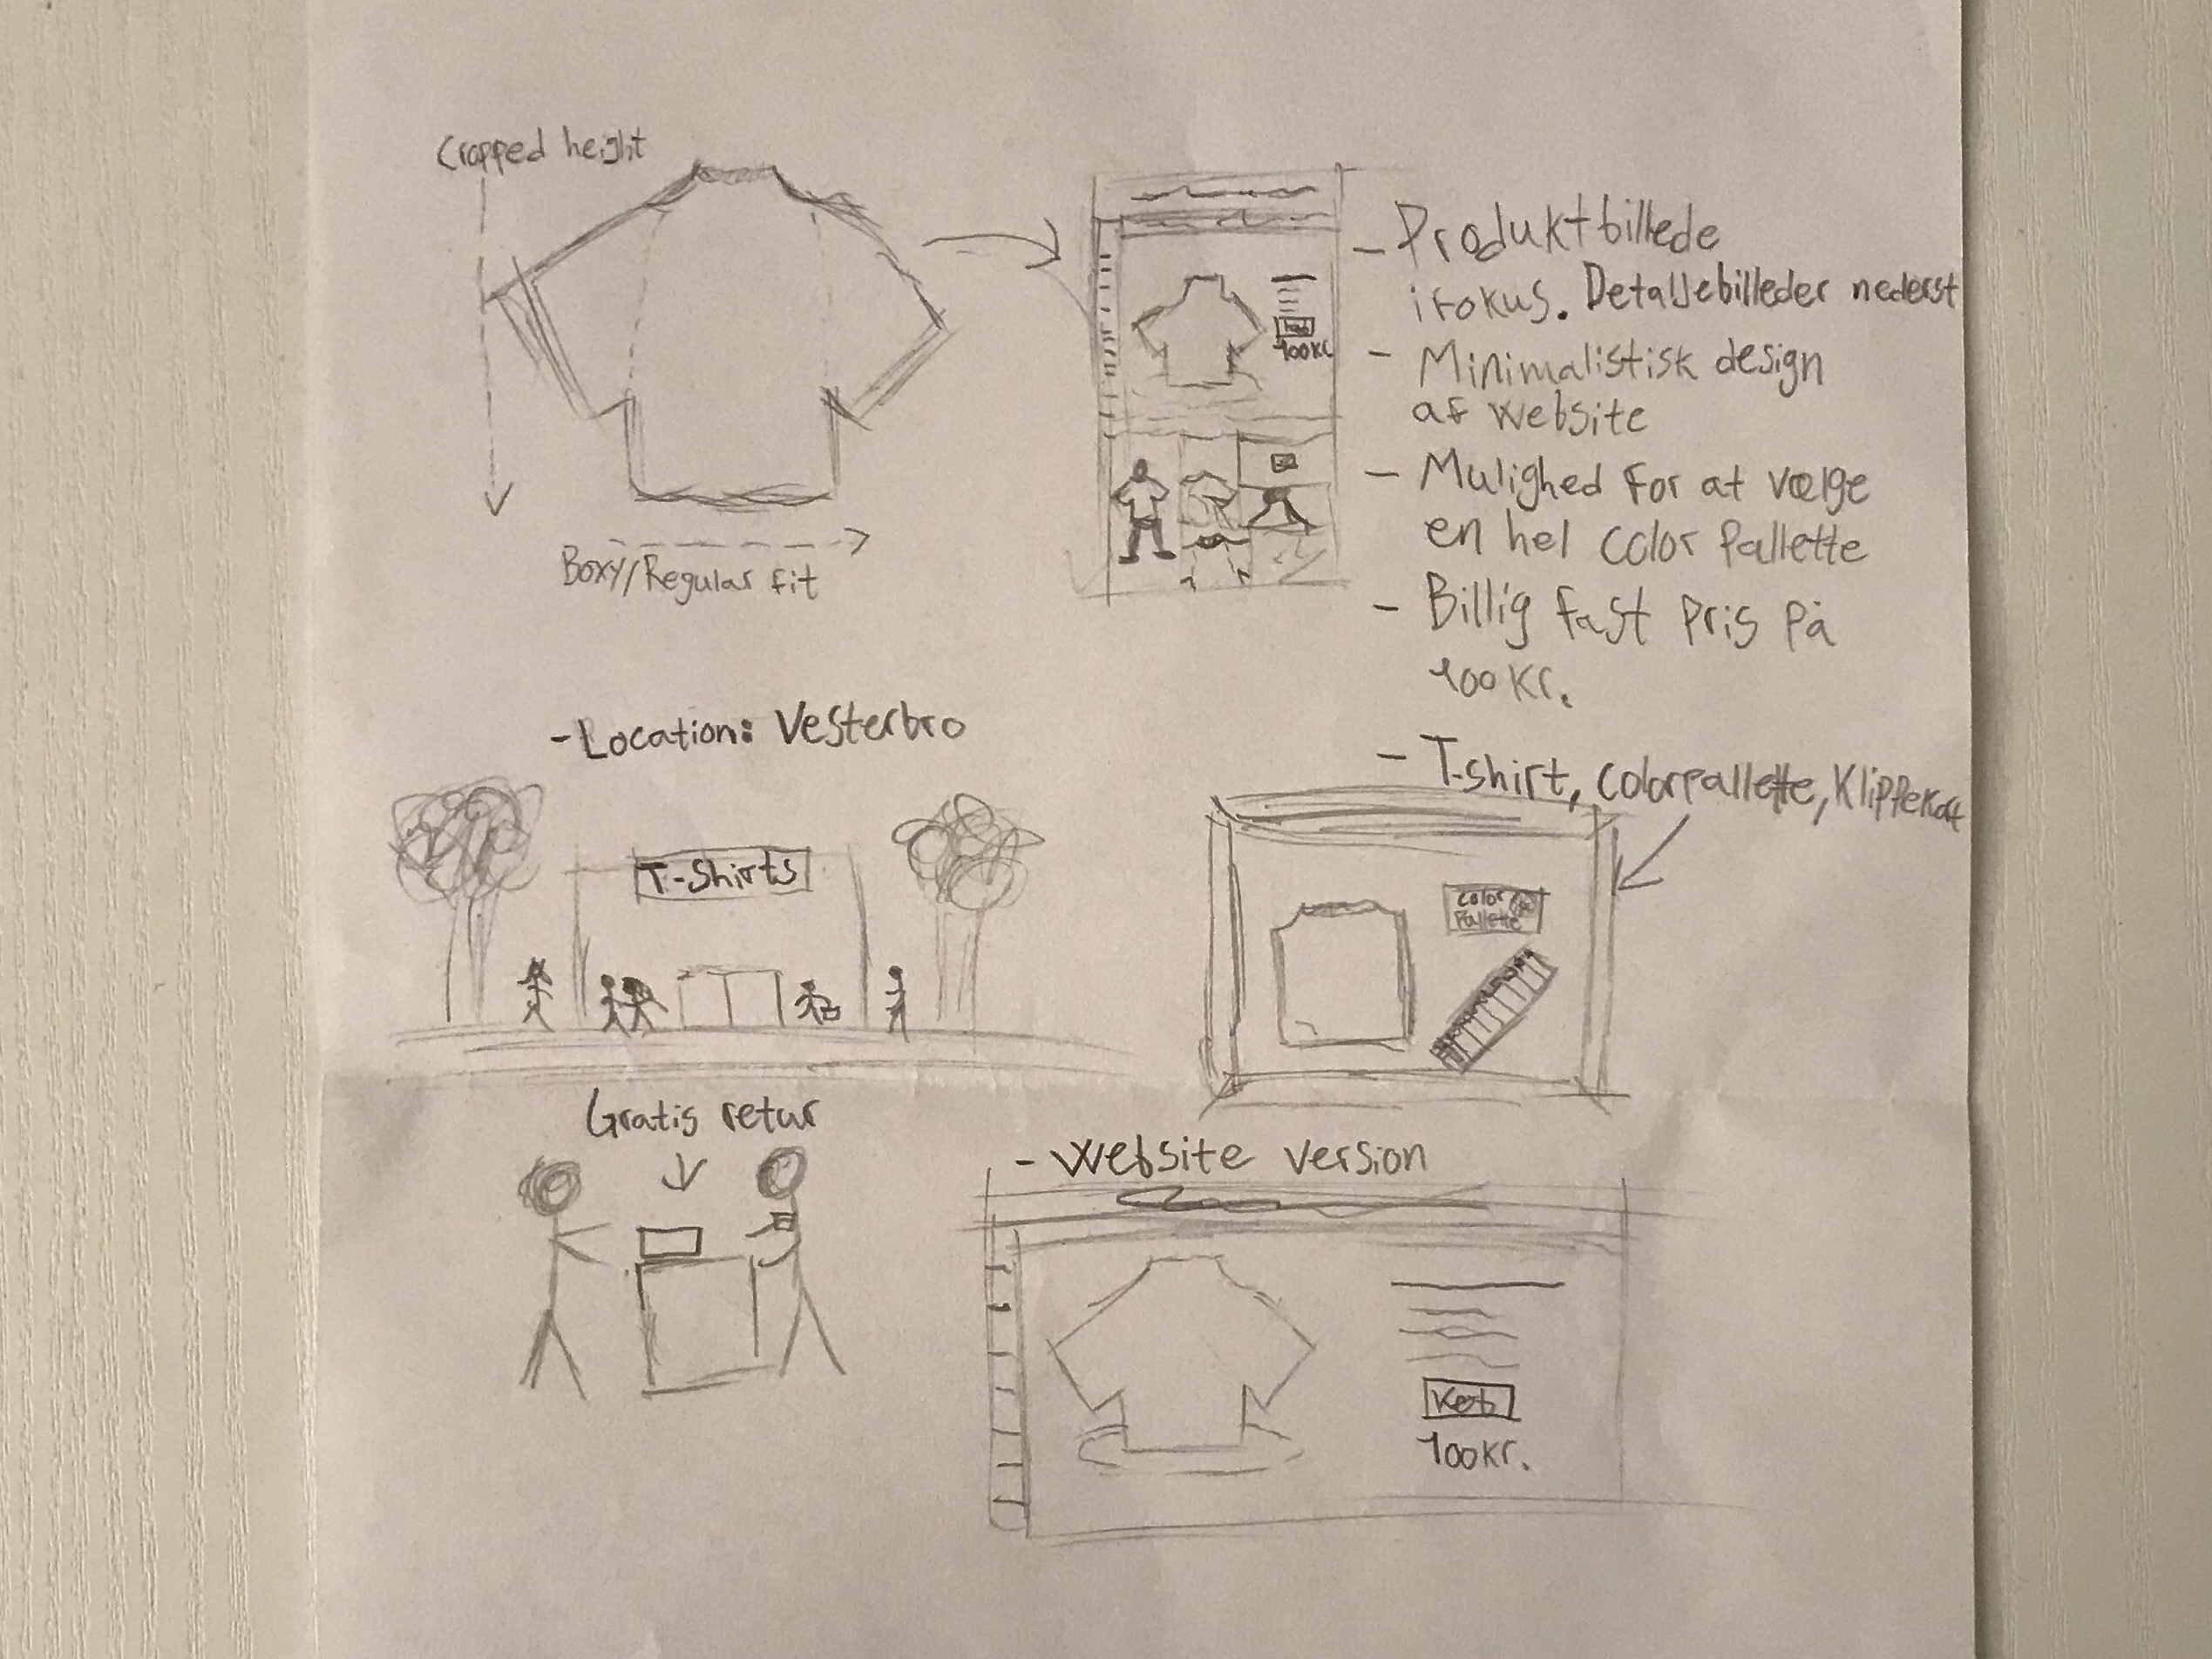 Cropped height
Boxy/Regular fit
100Kr
- Produktbillede
i fokus. Detaljebilleder nederst
- Minimalistisk design
af website
- Mulighed for at vælge
en hel color Pallette
- Billig fast pris på
100Kr.
- Location: Vesterbro
T-Shirts
- T-shirt, Colorpallette, Klippekort
Color
Pallette
Gratis retur
- Website version
Køb
100Kr.